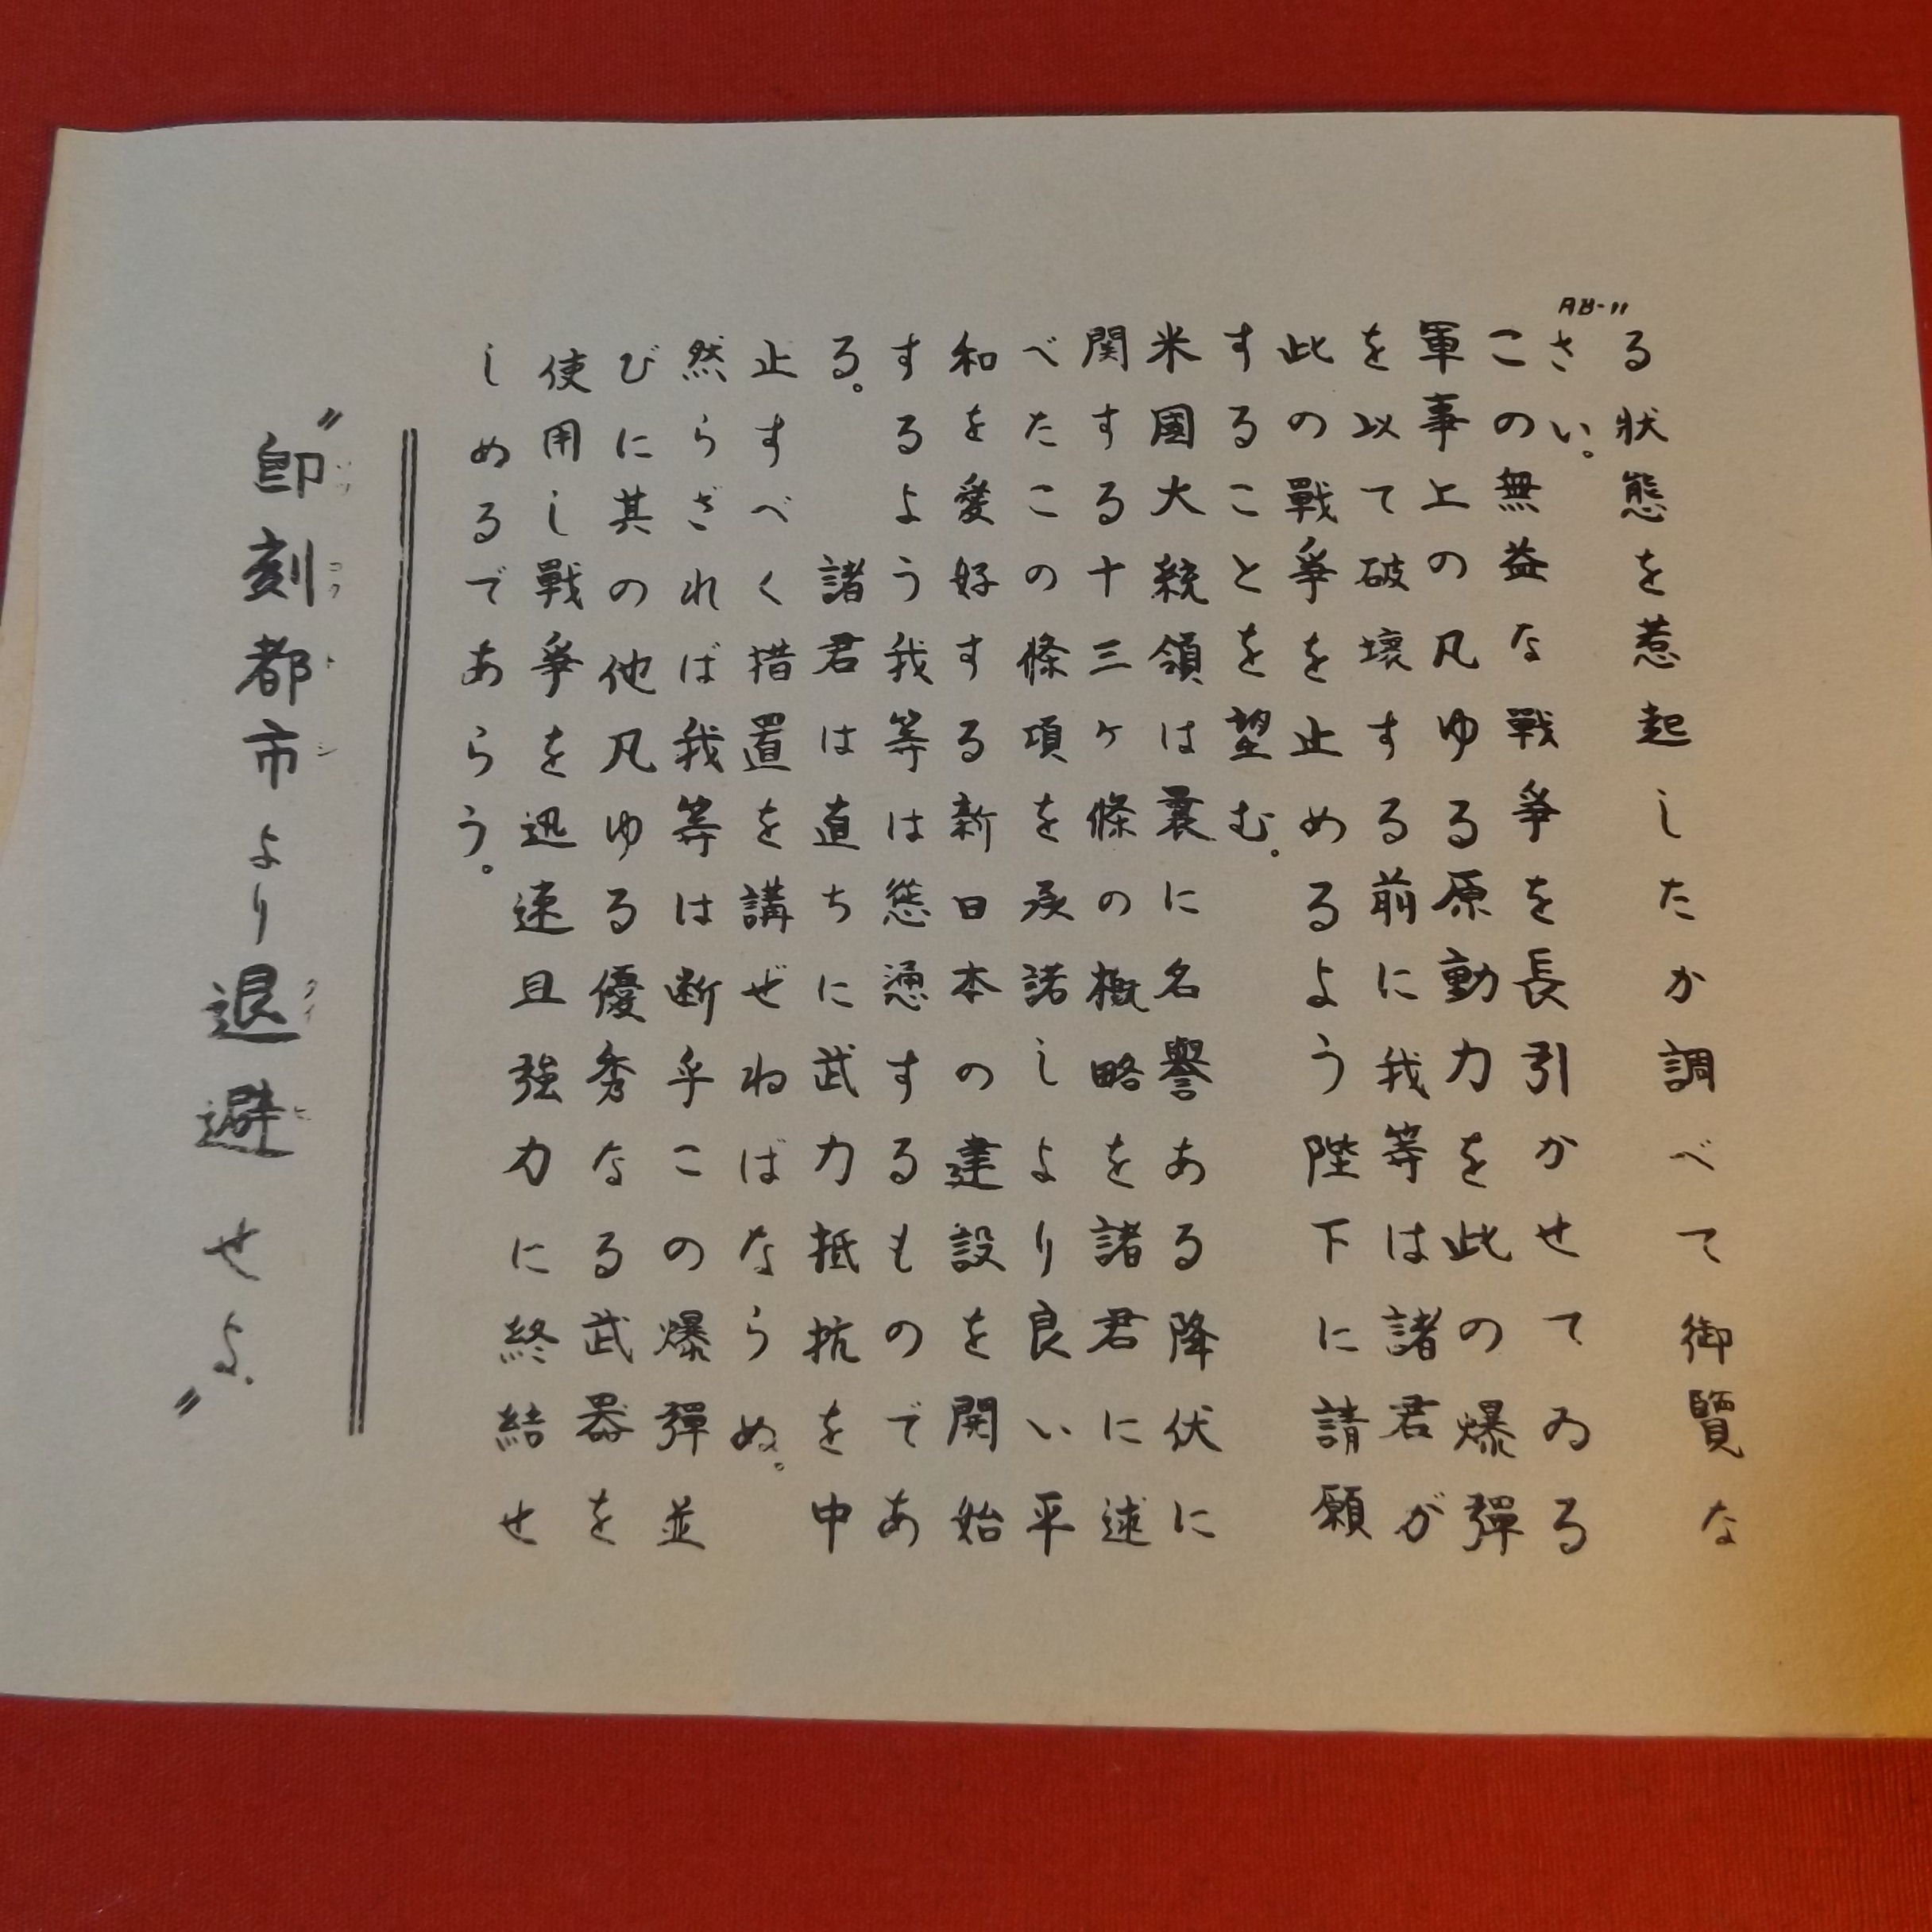 AB-11
る状態を惹起したか調べて御覧な
さい。
この無益な戰爭を長引かせてゐる
軍事上の凡ゆる原動力を此の爆彈
を以て破壊する前に我等は諸君が
此の戰爭を止めるよう陛下に請願
することを望む。
米國大統領は曩に名譽ある降伏に
関する十三ヶ條の概略を諸君に述
べたこの條項を承諾しより良い平
和を愛好する新日本の建設を開始
するよう我等は慫慂するものであ
る。
諸君は直ちに武力抵抗を中
止すべく措置を講ぜねばならぬ。
然らざれば我等は断乎この爆彈並
びに其の他凡ゆる優秀なる武器を
使用し戰爭を迅速且強力に終結せ
しめるであらう。
〃卽刻都市より退避せよ〃